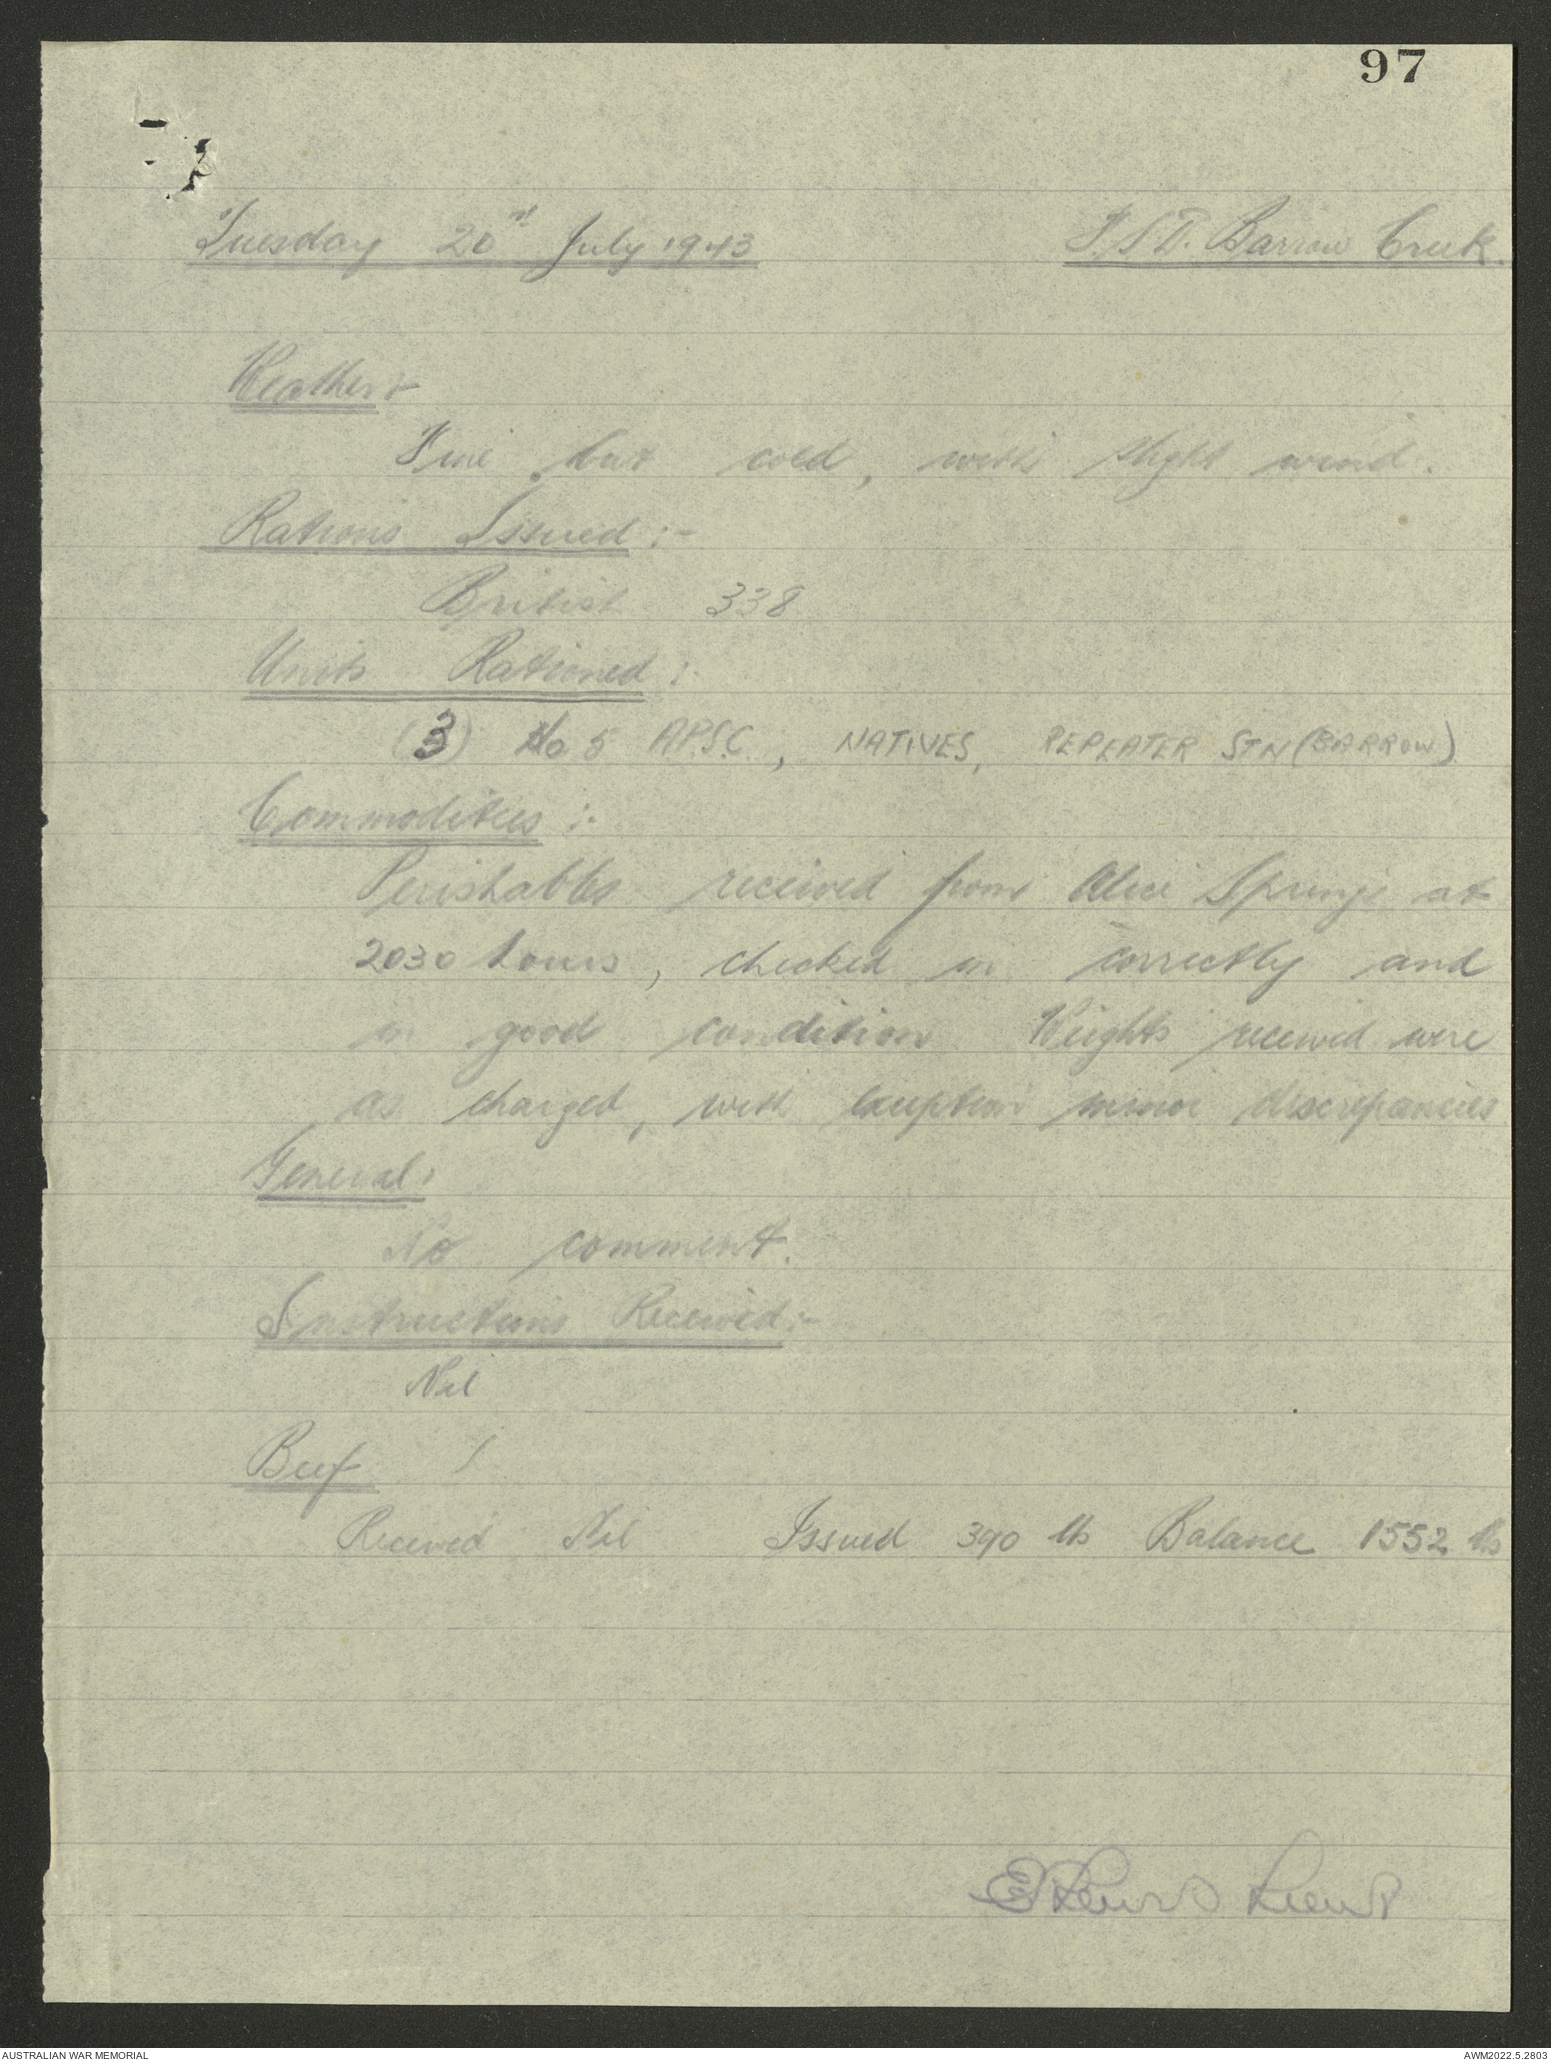 97
Tuesday 20th July 1943 F.S.D. Barrow Creek.
Weather:-
Fine but cold, with slight wind.
Rations Issued :-
British 338
Units Rationed :
(3) No 5 A.P.S.C., NATIVES, REPEATER STN (BARROW)
Commodities :-
Perishables received from Alice Springs at
2030 hours, checked in correctly and
in good condition. Weights received were
as charged, with exception minor discrepancies
General:
No comment.
Instructions Received:-
Nil
Beef
Received Nil Issued 390 lbs Balance 1552 lbs
Lieut
AUSTRALIAN WAR MEMORIAL AWM2022.5.2803